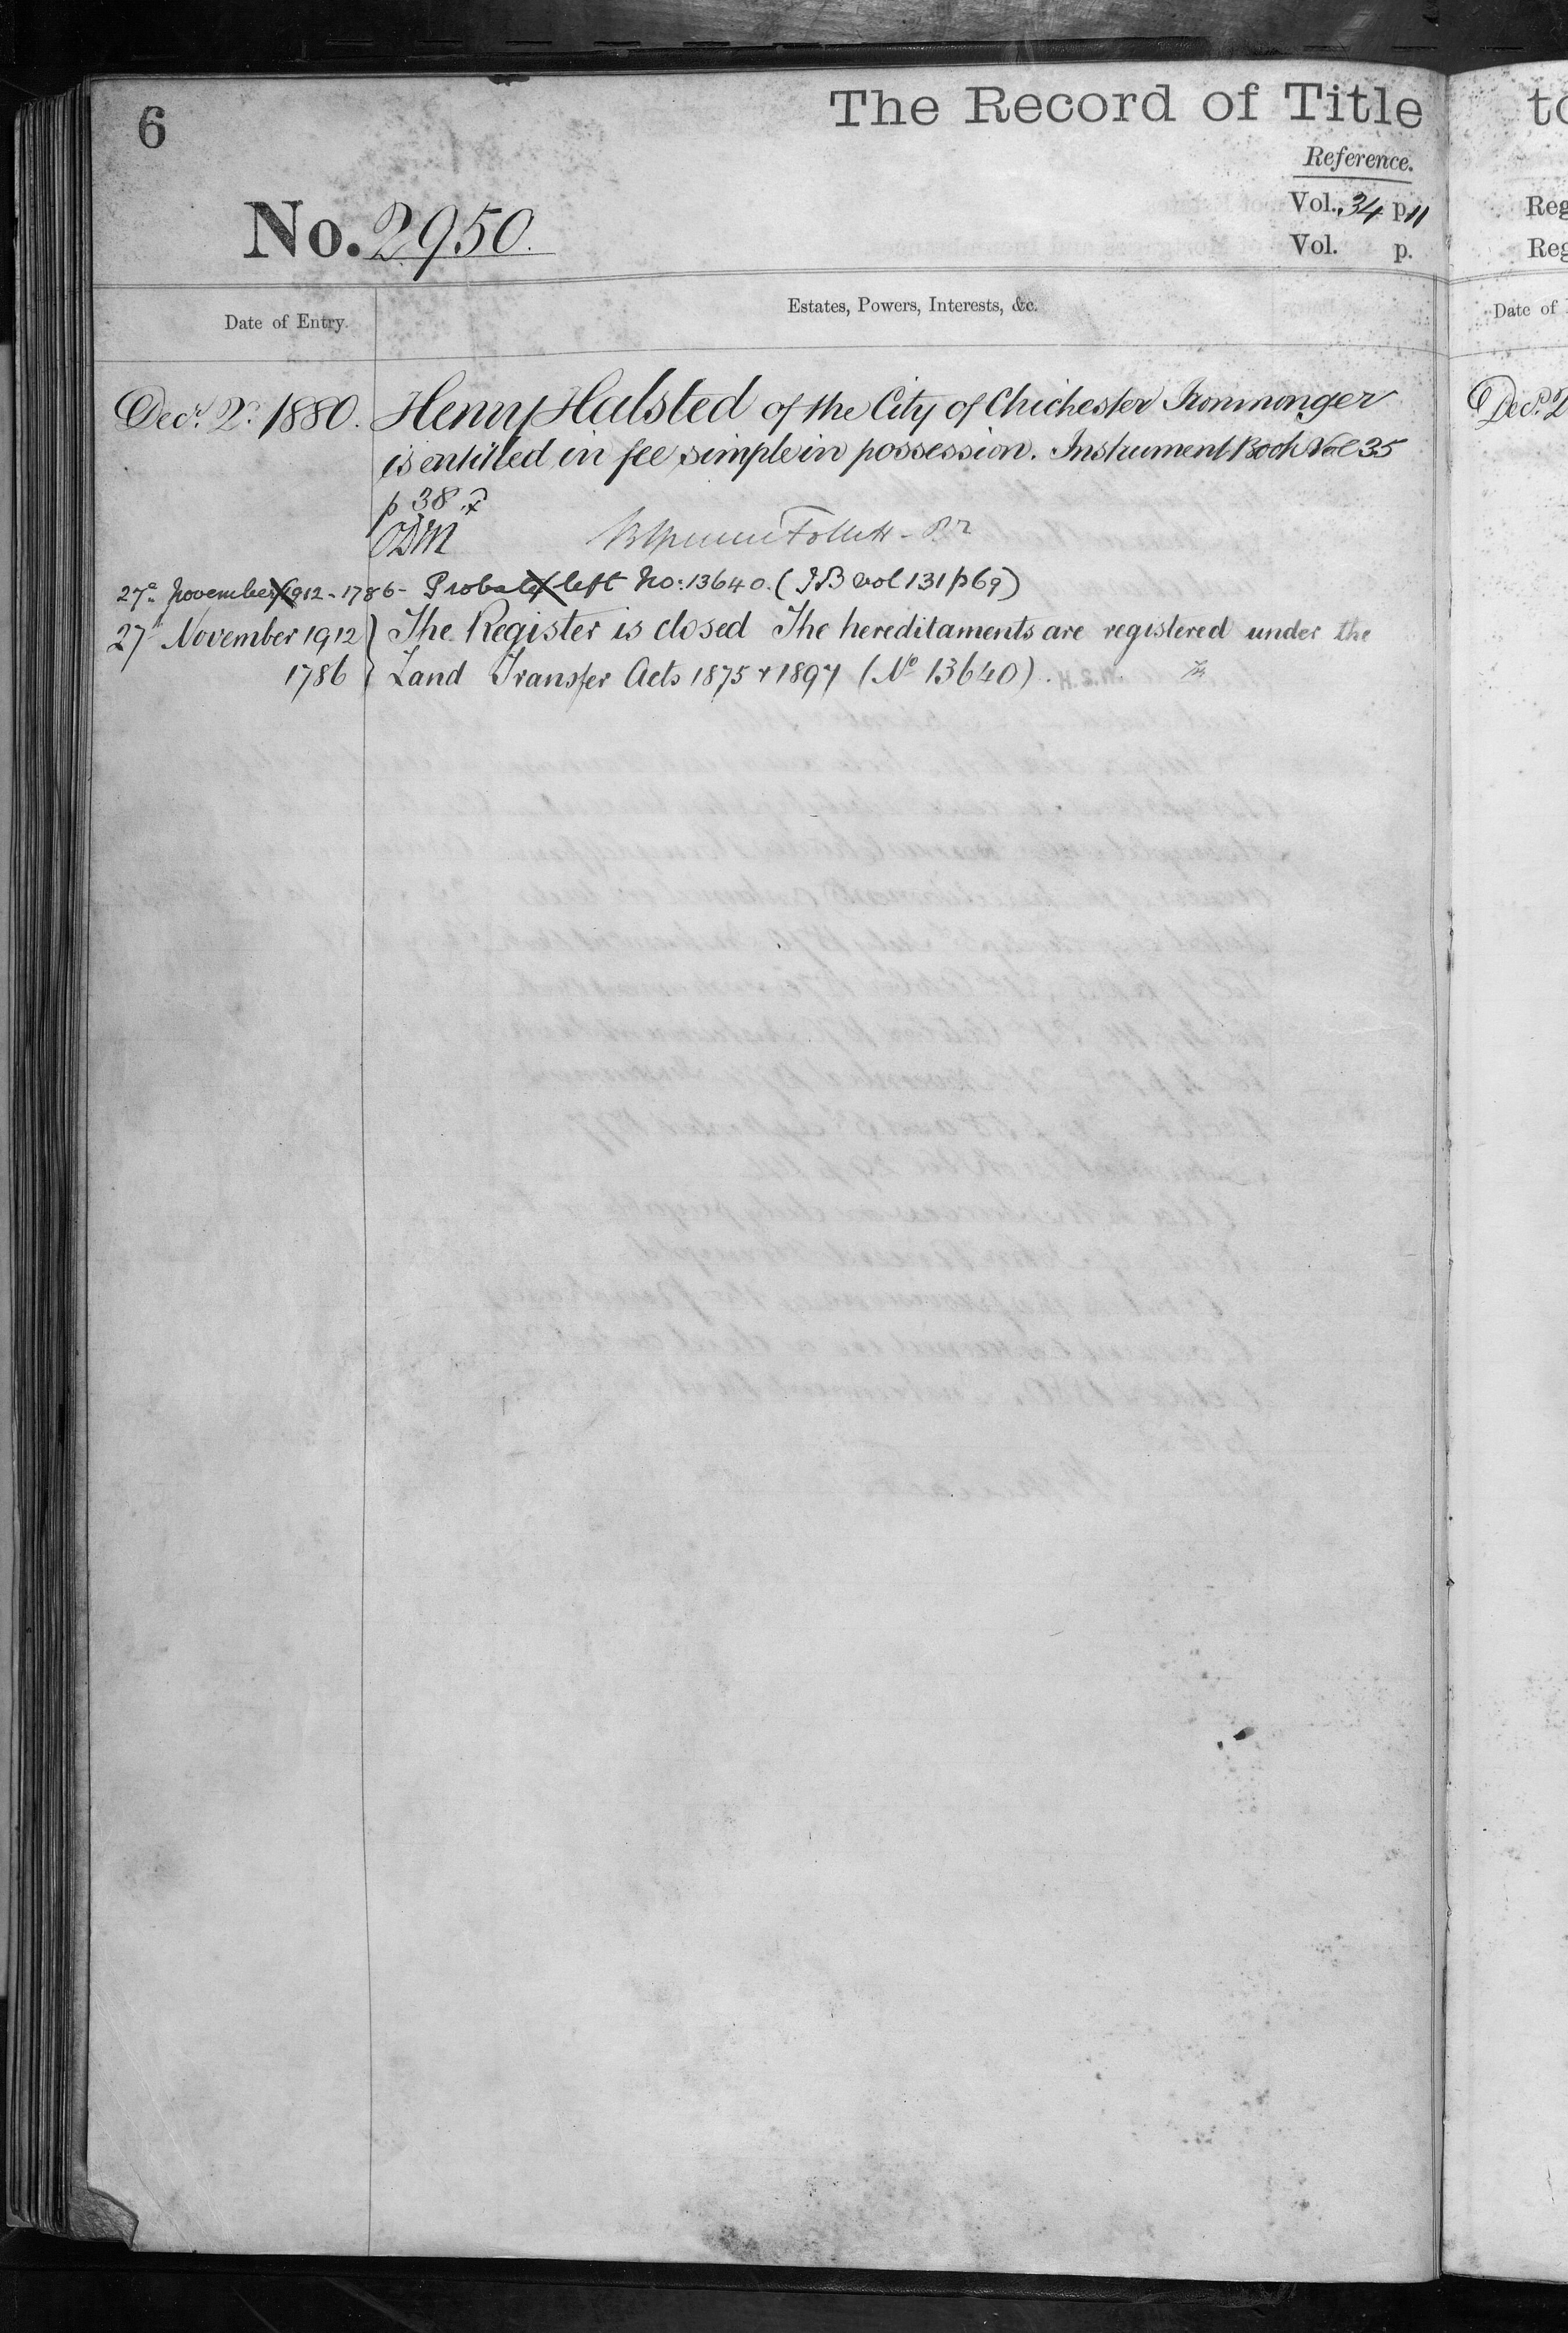 6
The Record of Title
Reference.
No. 2950.
Vol. 34 p. 11
Vol. p.
Date of Entry.
Estates, Powers, Interests, &c.
Decr. 2d. 1880. Henry Halsted of the City of Chichester Ironmonger
is entitled in fee simple in possession. Instrument Book Vol 35
p 38.
ODM
27th November 1912 - 1786 - Probate left No: 13640. (IB vol 131 p 69)
27th November 1912 } The Register is closed The hereditaments are registered under the
1786 } Land Transfer Acts 1875 & 1897 (No 13640).
to
Reg
Reg
Date of
Decr. 2